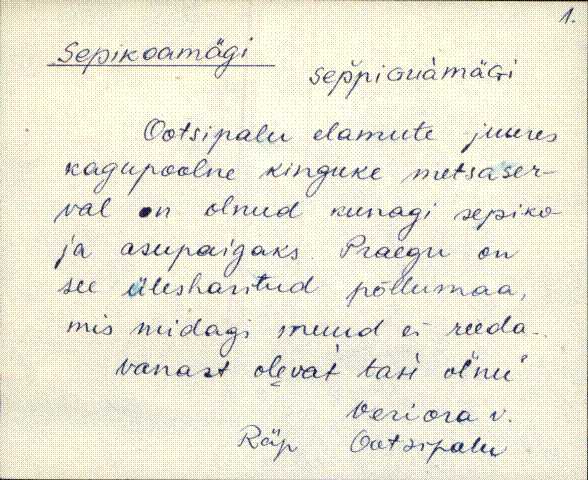 1.
Sepikoamägi
sep̆piGuàmäGi
Ootsipalu elamute juures
kagupoolne kinguke metsaser-
val on olnud kunagi sepiko-
ja asupaigaks. Praegu on
see ülesharitud põllumaa,
mis midagi muud ei reeda.
vanast olevat
Veriora v.
Räp Ootsipalu